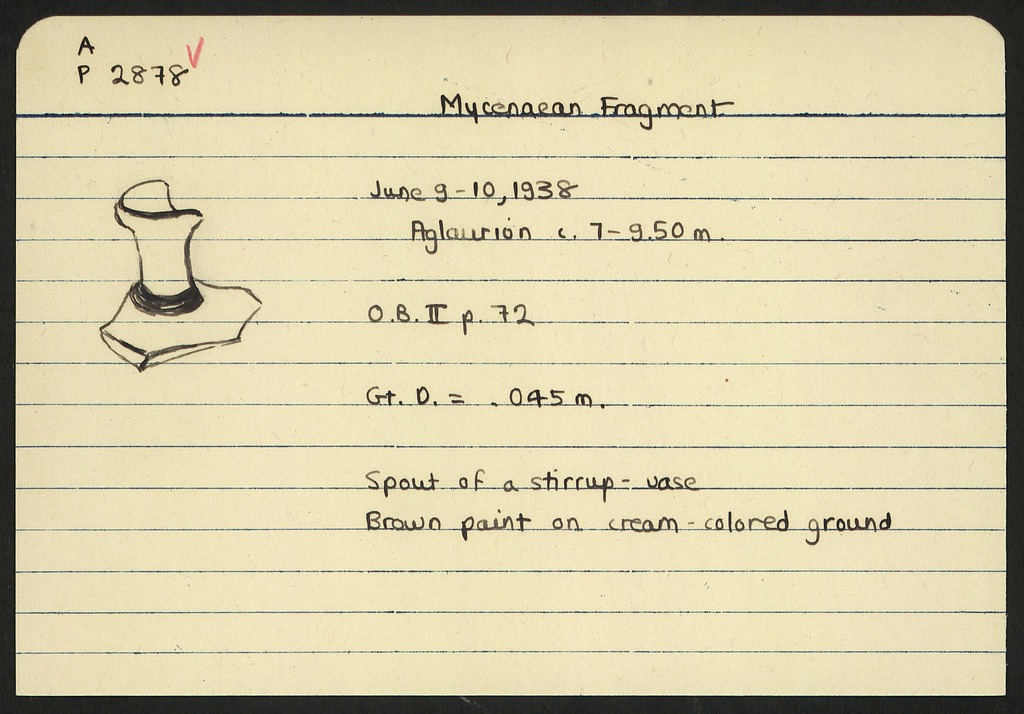 A
P 2878
Mycenaean Fragment
June 9-10, 1938
Aglaurion c. 7-9.50 m.
O.B. II p. 72
Gt. D. = .045 m.
Spout of a stirrup-vase
Brown paint on cream-colored ground